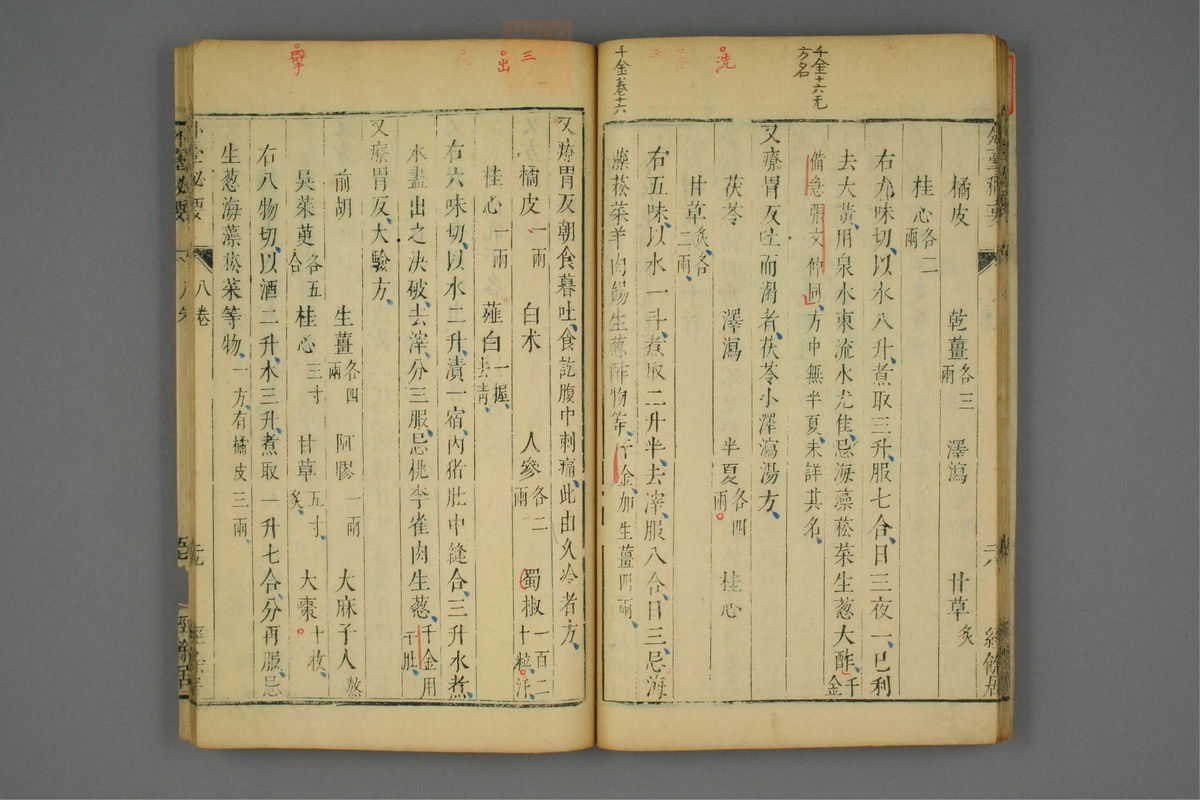 千金十六无
方名
洗
千金卷十六
橘皮 乾薑各三兩 澤瀉 甘草炙
桂心各二兩
右九味切以水八升煮取三升服七合日三夜一已利
去大黃用泉水東流水尤佳忌海藻菘菜生葱大酢千金
備急張文仲同方中無半夏未詳其名
又療胃反吐而渴者茯苓小澤瀉湯方
茯苓 澤瀉 半夏各四兩 桂心
甘草炙各二兩
右五味以水一斗煮取二升半去滓服八合日三忌海
藻菘菜羊肉餳生葱酢物等千金加生薑四兩
三
出
擘
又療胃反朝食暮吐食訖腹中刺痛此由久冷者方
橘皮一兩 白朮 人參各二兩 蜀椒一百二十粒汗
桂心一兩 薤白一握去靑
右六味切以水二升漬一宿內猪肚中縫合三升水煮
水盡出之決破去滓分三服忌桃李雀肉生葱千金用羊肚
又療胃反大驗方
前胡 生薑各四兩 阿膠一兩 大麻子人熬
吳茱萸各五合 桂心三寸 甘草五寸炙 大棗十枚
右八物切以酒二升水三升煮取一升七合分再服忌
生葱海藻菘菜等物一方有橘皮三兩
外臺秘要 八卷
經餘居